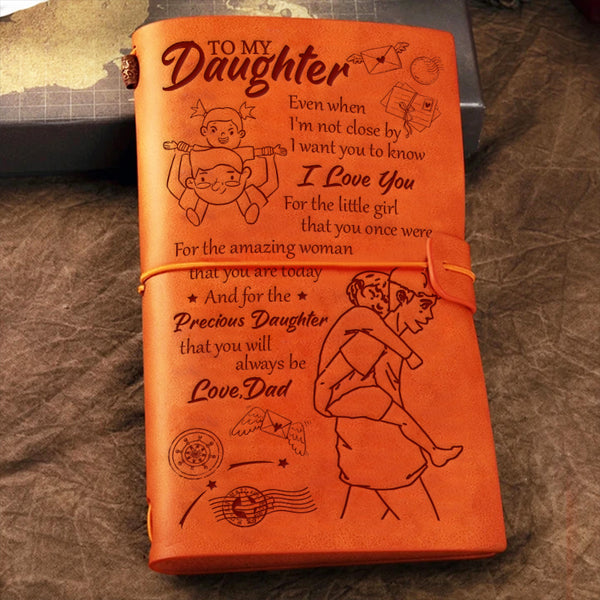 TO MY
Daughter
Even when
I'm not close by
I want you to know
I Love You
For the little girl
that you once were
For the amazing woman
that you are today
And for the
Precious Daughter
that you will
always be
Love, Dad